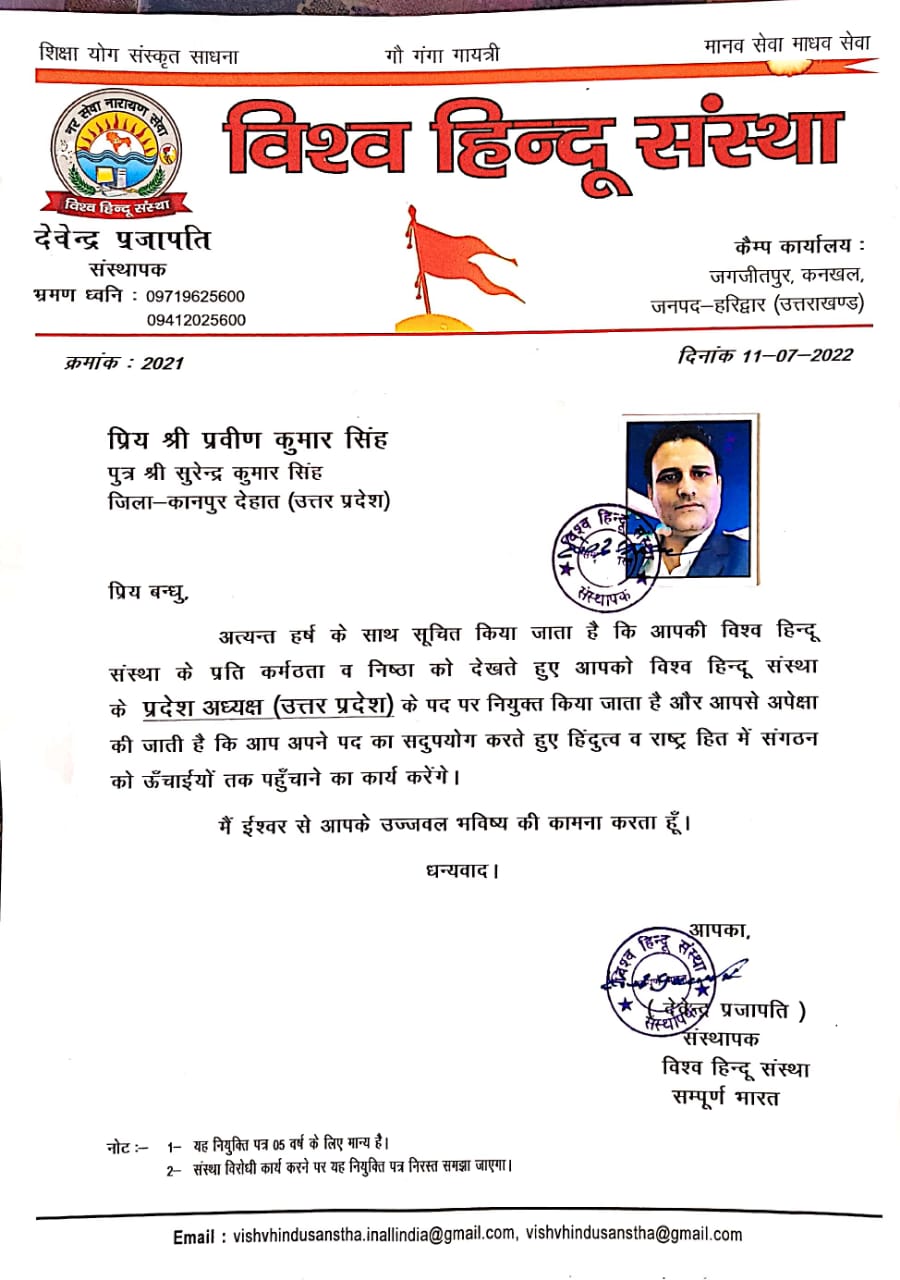 शिक्षा योग संस्कृत साधना
गौ गंगा गायत्री
मानव सेवा माधव सेवा
नर सेवा नारायण सेवा
विश्व हिन्दू संस्था
विश्व हिन्दू संस्था
देवेन्द्र प्रजापति
संस्थापक
भ्रमण ध्वनि : 09719625600
09412025600
कैम्प कार्यालय :
जगजीतपुर, कनखल,
जनपद–हरिद्वार (उत्तराखण्ड)
क्रमांक : 2021
दिनांक 11–07–2022
प्रिय श्री प्रवीण कुमार सिंह
पुत्र श्री सुरेन्द्र कुमार सिंह
जिला–कानपुर देहात (उत्तर प्रदेश)
विश्व हिन्दू संस्था
संस्थापक
प्रिय बन्धु,
अत्यन्त हर्ष के साथ सूचित किया जाता है कि आपकी विश्व हिन्दू
संस्था के प्रति कर्मठता व निष्ठा को देखते हुए आपको विश्व हिन्दू संस्था
के प्रदेश अध्यक्ष (उत्तर प्रदेश) के पद पर नियुक्त किया जाता है और आपसे अपेक्षा
की जाती है कि आप अपने पद का सदुपयोग करते हुए हिंदुत्व व राष्ट्र हित में संगठन
को ऊँचाईयों तक पहुँचाने का कार्य करेंगे।
मैं ईश्वर से आपके उज्जवल भविष्य की कामना करता हूँ।
धन्यवाद।
आपका,
विश्व हिन्दू संस्था
संस्थापक
( देवेन्द्र प्रजापति )
संस्थापक
विश्व हिन्दू संस्था
सम्पूर्ण भारत
नोट :– 1– यह नियुक्ति पत्र 05 वर्ष के लिए मान्य है।
2– संस्था विरोधी कार्य करने पर यह नियुक्ति पत्र निरस्त समझा जाएगा।
Email : vishvhindusanstha.inallindia@gmail.com, vishvhindusanstha@gmail.com